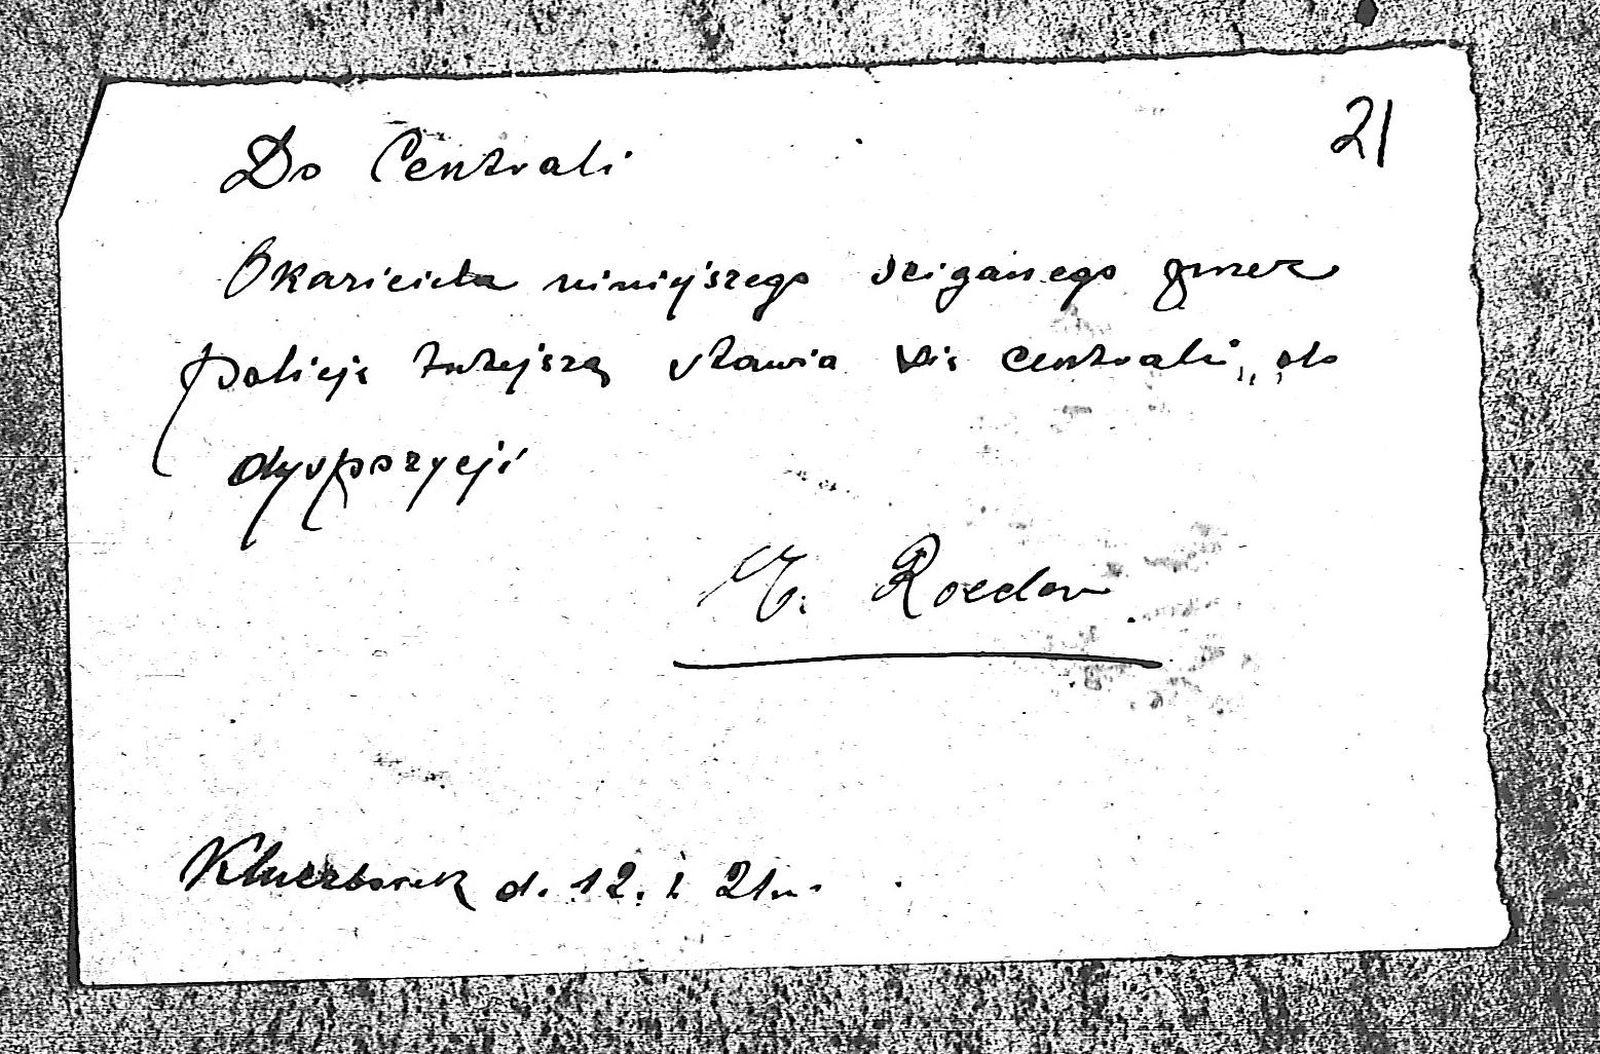 21
Do Centrali
Okaziciela niniejszego sciganego przez
policję tutejszą stawia się centrali do
dyspozycji
Rozdon
Kluczborek d. 12. I 21 r.